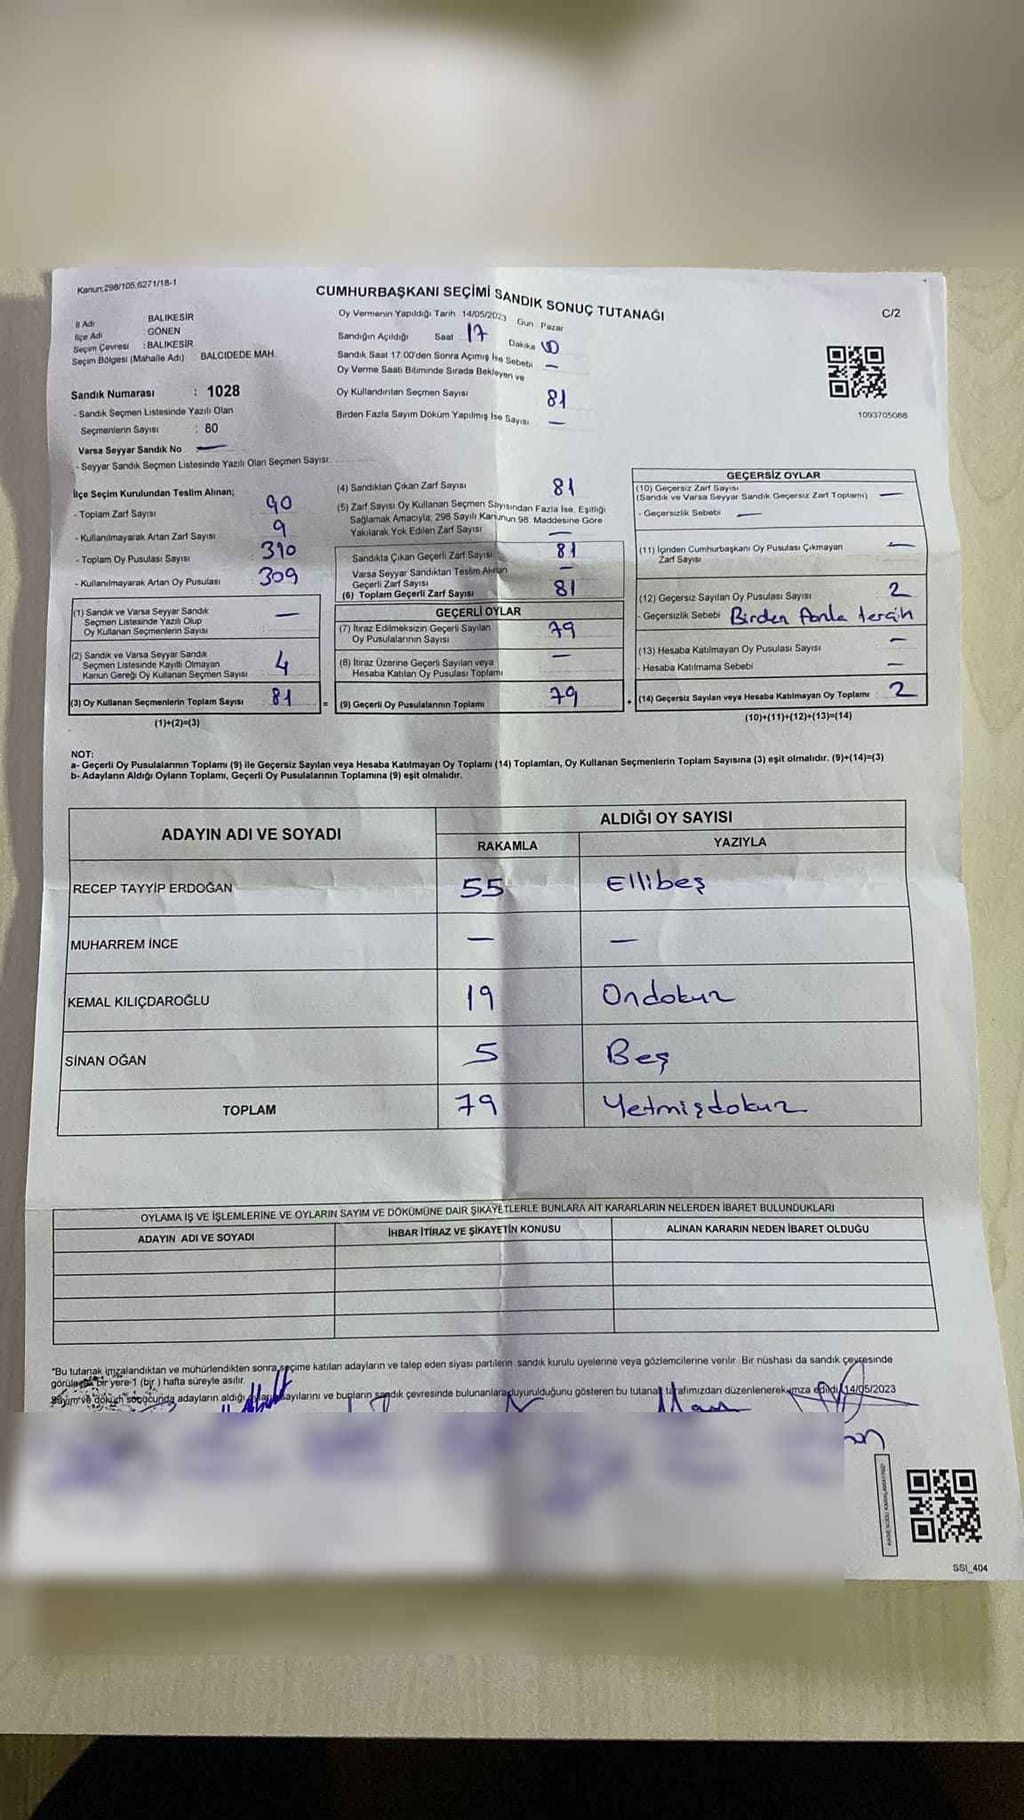 Kanun:298/105,6271/18-1
C/2
CUMHURBAŞKANI SEÇİMİ SANDIK SONUÇ TUTANAĞI
İl Adı BALIKESİR
İlçe Adı GÖNEN
Seçim Çevresi :BALIKESİR
Seçim Bölgesi (Mahalle Adı) BALCIDEDE MAH.
Sandık Numarası : 1028
- Sandık Seçmen Listesinde Yazılı Olan
Seçmenlerin Sayısı : 80
Varsa Seyyar Sandık No —
- Seyyar Sandık Seçmen Listesinde Yazılı Olan Seçmen Sayısı:
Oy Vermenin Yapıldığı Tarih 14/05/2023 Gün Pazar
Sandığın Açıldığı Saat 17 Dakika
Sandık Saat 17.00'den Sonra Açımış İse Sebebi —
Oy Verme Saati Bitiminde Sırada Bekleyen ve
Oy Kullandırılan Seçmen Sayısı 81
Birden Fazla Sayım Döküm Yapılmış İse Sayısı —
1093705088
İlçe Seçim Kurulundan Teslim Alınan;
- Toplam Zarf Sayısı 90
- Kullanılmayarak Artan Zarf Sayısı 9
- Toplam Oy Pusulası Sayısı 390
- Kullanılmayarak Artan Oy Pusulası 309
(1) Sandık ve Varsa Seyyar Sandık
Seçmen Listesinde Yazılı Olup
Oy Kullanan Seçmenlerin Sayısı —
(2) Sandık ve Varsa Seyyar Sandık
Seçmen Listesinde Kayıtlı Olmayan
Kanun Gereği Oy Kullanan Seçmen Sayısı 4
(3) Oy Kullanan Seçmenlerin Toplam Sayısı 81
(1)+(2)=(3)
(4) Sandıktan Çıkan Zarf Sayısı 81
(5) Zarf Sayısı Oy Kullanan Seçmen Sayısından Fazla İse, Eşitliği
Sağlamak Amacıyla; 298 Sayılı Kanunun 98. Maddesine Göre
Yakılarak Yok Edilen Zarf Sayısı —
Sandıkta Çıkan Geçerli Zarf Sayısı 81
Varsa Seyyar Sandıktan Teslim Alınan
Geçerli Zarf Sayısı —
(6) Toplam Geçerli Zarf Sayısı 81
GEÇERLİ OYLAR
(7) İtiraz Edilmeksizin Geçerli Sayılan
Oy Pusulalarının Sayısı 79
(8) İtiraz Üzerine Geçerli Sayılan veya
Hesaba Katılan Oy Pusulası Toplamı —
= (9) Geçerli Oy Pusulalarının Toplamı 79
GEÇERSİZ OYLAR
(10) Geçersiz Zarf Sayısı
(Sandık ve Varsa Seyyar Sandık Geçersiz Zarf Toplamı) —
- Geçersizlik Sebebi —
(11) İçinden Cumhurbaşkanı Oy Pusulası Çıkmayan
Zarf Sayısı —
(12) Geçersiz Sayılan Oy Pusulası Sayısı 2
- Geçersizlik Sebebi Birden Fazla tercih
(13) Hesaba Katılmayan Oy Pusulası Sayısı —
- Hesaba Katılmama Sebebi —
+ (14) Geçersiz Sayılan veya Hesaba Katılmayan Oy Toplamı 2
(10)+(11)+(12)+(13)=(14)
NOT:
a- Geçerli Oy Pusulalarının Toplamı (9) ile Geçersiz Sayılan veya Hesaba Katılmayan Oy Toplamı (14) Toplamları, Oy Kullanan Seçmenlerin Toplam Sayısına (3) eşit olmalıdır. (9)+(14)=(3)
b- Adayların Aldığı Oyların Toplamı, Geçerli Oy Pusulalarının Toplamına (9) eşit olmalıdır.
ADAYIN ADI VE SOYADI
ALDIĞI OY SAYISI
RAKAMLA YAZIYLA
RECEP TAYYİP ERDOĞAN 55 Ellibeş
MUHARREM İNCE — —
KEMAL KILIÇDAROĞLU 19 Ondokuz
SİNAN OĞAN 5 Beş
TOPLAM 79 Yetmişdokuz
OYLAMA İŞ VE İŞLEMLERİNE VE OYLARIN SAYIM VE DÖKÜMÜNE DAİR ŞİKAYETLERLE BUNLARA AİT KARARLARIN NELERDEN İBARET BULUNDUKLARI
ADAYIN ADI VE SOYADI İHBAR İTİRAZ VE ŞİKAYETİN KONUSU ALINAN KARARIN NEDEN İBARET OLDUĞU
*Bu tutanak imzalandıktan ve mühürlendikten sonra seçime katılan adayların ve talep eden siyasi partilerin sandık kurulu üyelerine veya gözlemcilerine verilir. Bir nüshası da sandık çevresinde
görülecek bir yere 1 (bir ) hafta süreyle asılır.
Sayım ve döküm sonucunda adayların aldığı sayılarını ve bunların sandık çevresinde bulunanlara duyurulduğunu gösteren bu tutanak tarafımızdan düzenlenerek imza edildi. 14/05/2023
SSİ_404